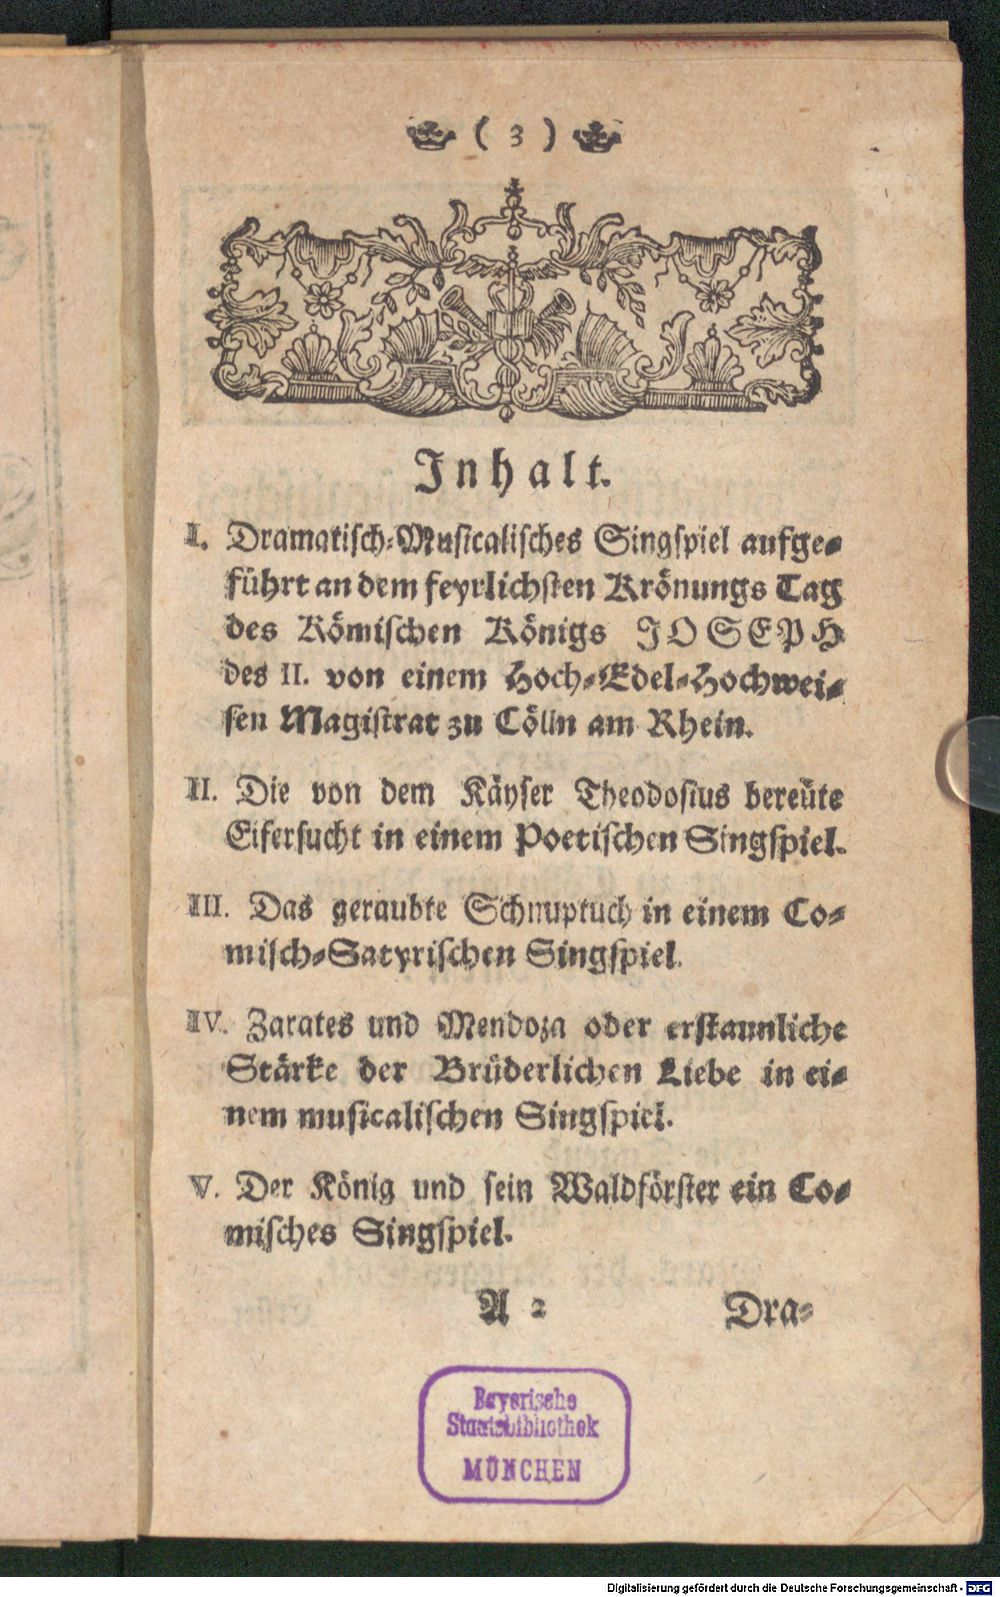 ( 3 )
Inhalt.
I. Dramatisch-Musicalisches Singspiel aufge-
führt an dem feyrlichsten Krönungs Tag
des Römischen Königs JOSEPH
des II. von einem Hoch-Edel-Hochwei-
sen Magistrat zu Cölln am Rhein.
II. Die von dem Käyser Theodosius bereüte
Eifersucht in einem Poetischen Singspiel.
III. Das geraubte Schnuptuch in einem Co-
misch-Satyrischen Singspiel.
IV. Zarates und Mendoza oder erstaunliche
Stärke der Brüderlichen Liebe in ei-
nem musicalischen Singspiel.
V. Der König und sein Waldförster ein Co-
misches Singspiel.
A 2 Dra-
Bayerische
Staatsbibliothek
MÜNCHEN
Digitalisierung gefördert durch die Deutsche Forschungsgemeinschaft - DFG